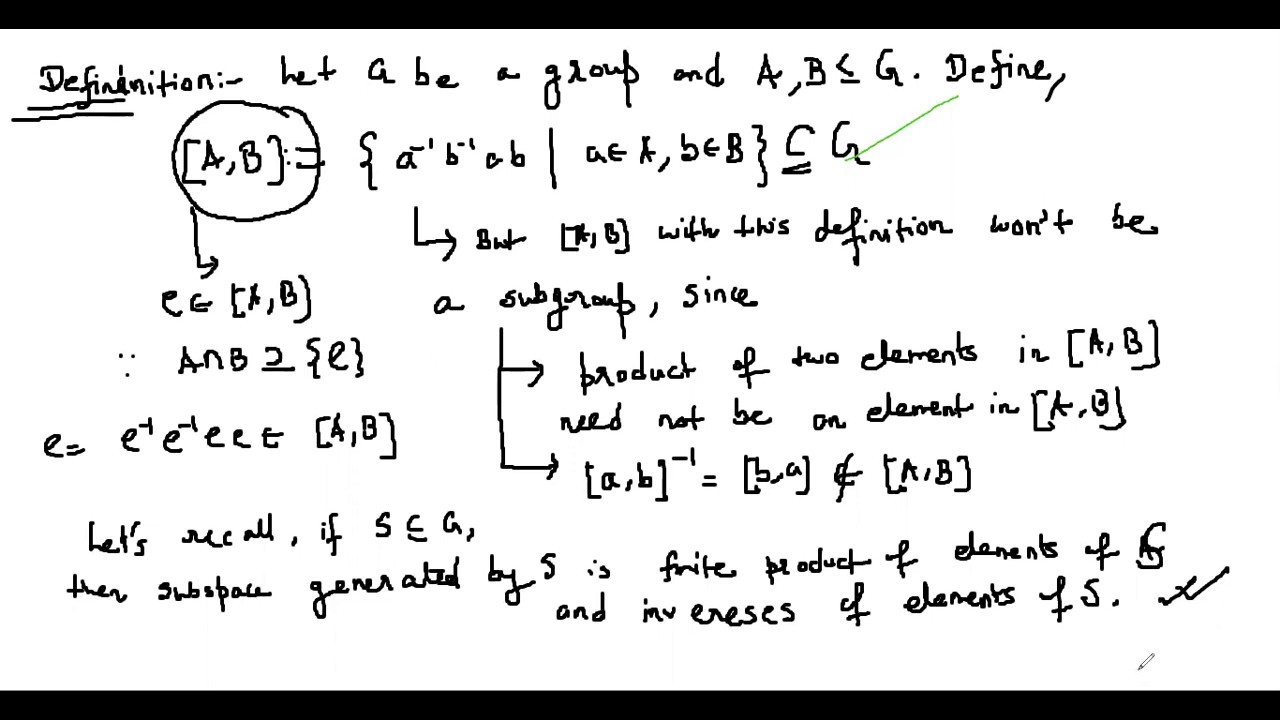 Definånition:- Let G be a group and A, B ≤ G. Define,
[A, B] := { a⁻¹ b⁻¹ a b | a ∈ A, b ∈ B } ⊆ G
↳ But [A, B] with this definition won't be
a subgroup, since
e ∈ [A, B]
∵ A ∩ B ⊇ {e}
e = e⁻¹ e⁻¹ e e ∈ [A, B]
→ product of two elements in [A, B]
need not be an element in [A, B]
→ [a, b]⁻¹ = [b, a] ∉ [A, B]
Let's recall, if S ⊆ G,
then subspace generated by S is finite product of elements of S
and invereses of elements of S.